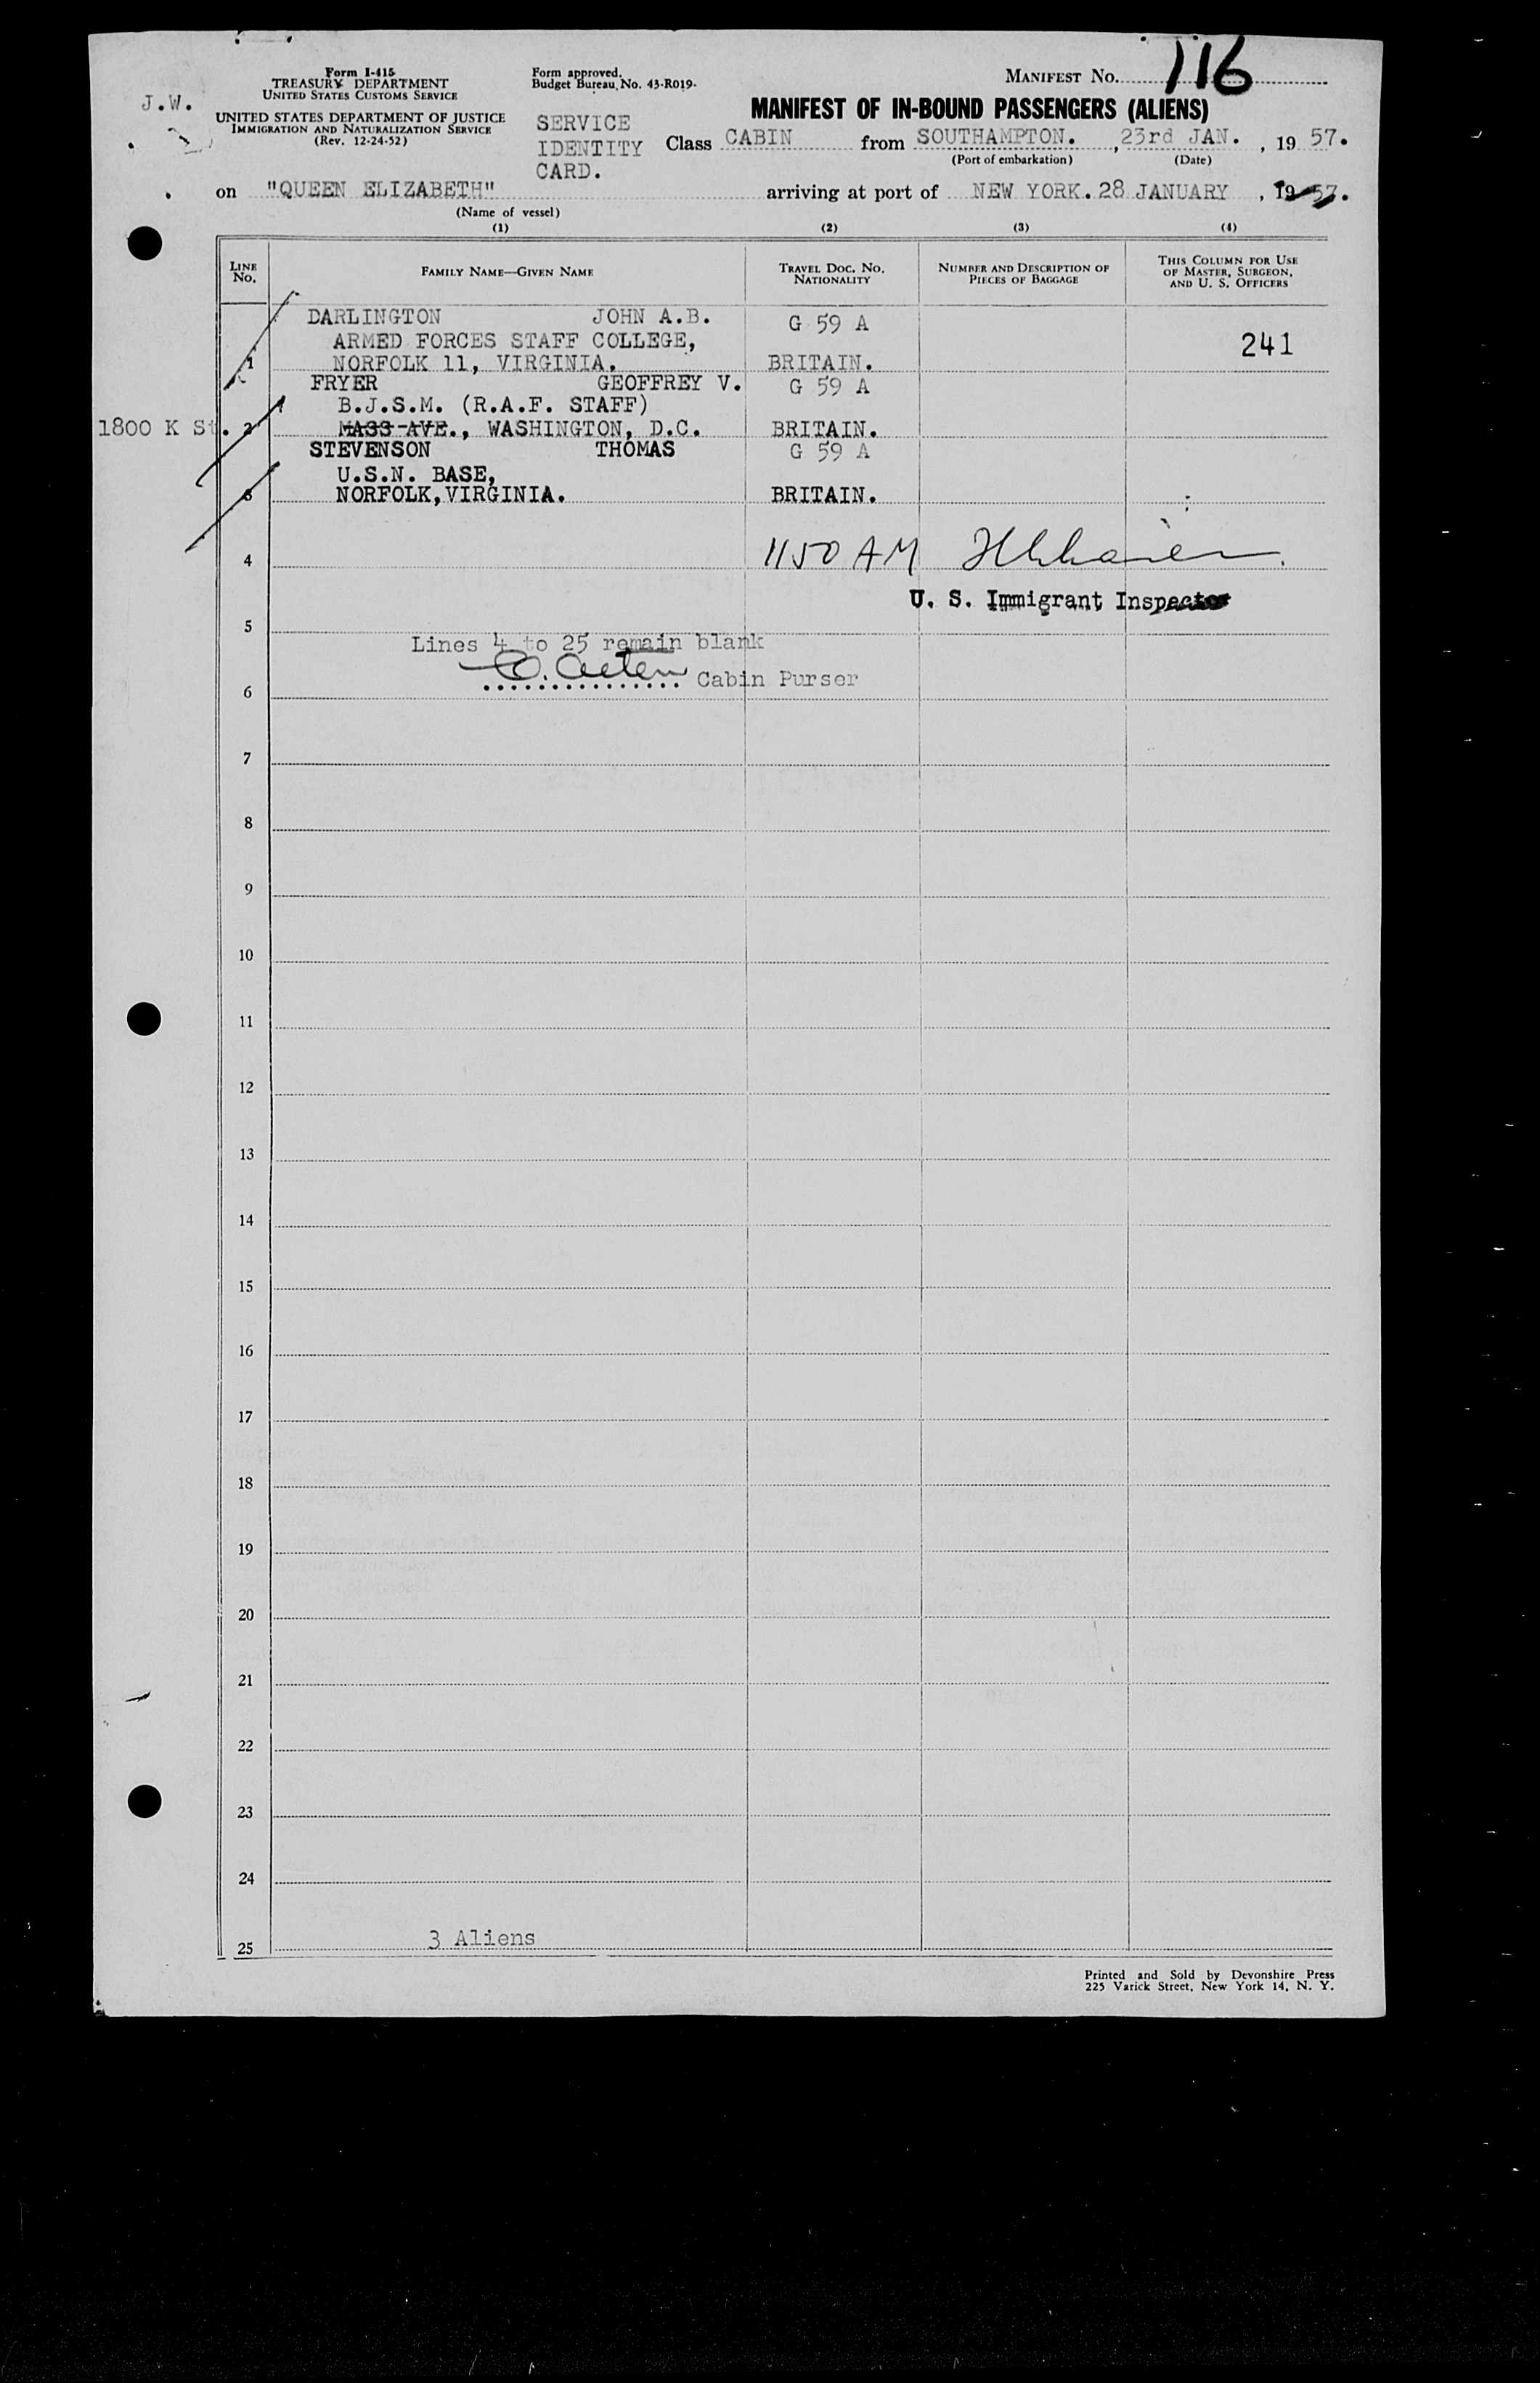 116
Form I-415
TREASURY DEPARTMENT
UNITED STATES CUSTOMS SERVICE
J.W.
UNITED STATES DEPARTMENT OF JUSTICE
IMMIGRATION AND NATURALIZATION SERVICE
(Rev. 12-24-52)
Form approved.
Budget Bureau No. 43-R019-
SERVICE
IDENTITY
CARD.
MANIFEST NO.
MANIFEST OF IN-BOUND PASSENGERS (ALIENS)
Class CABIN from SOUTHAMPTON. , 23rd JAN. , 19 57.
(Port of embarkation) (Date)
on "QUEEN ELIZABETH" arriving at port of NEW YORK. 28 JANUARY , 19 57.
(Name of vessel)
(1) (2) (3) (4)
LINE NO. FAMILY NAME—GIVEN NAME TRAVEL DOC. NO. NATIONALITY NUMBER AND DESCRIPTION OF PIECES OF BAGGAGE THIS COLUMN FOR USE OF MASTER, SURGEON, AND U. S. OFFICERS
DARLINGTON JOHN A.B. G 59 A
ARMED FORCES STAFF COLLEGE, 241
1 NORFOLK 11, VIRGINIA. BRITAIN.
FRYER GEOFFREY V. G 59 A
B.J.S.M. (R.A.F. STAFF)
1800 K St. 2 MASS AVE., WASHINGTON, D.C. BRITAIN.
STEVENSON THOMAS G 59 A
U.S.N. BASE,
3 NORFOLK, VIRGINIA. BRITAIN.
4 1150 AM
U. S. Immigrant Inspector
5
Lines 4 to 25 remain blank
Cabin Purser
6
7
8
9
10
11
12
13
14
15
16
17
18
19
20
21
22
23
24
3 Aliens
25
Printed and Sold by Devonshire Press
225 Varick Street, New York 14, N. Y.